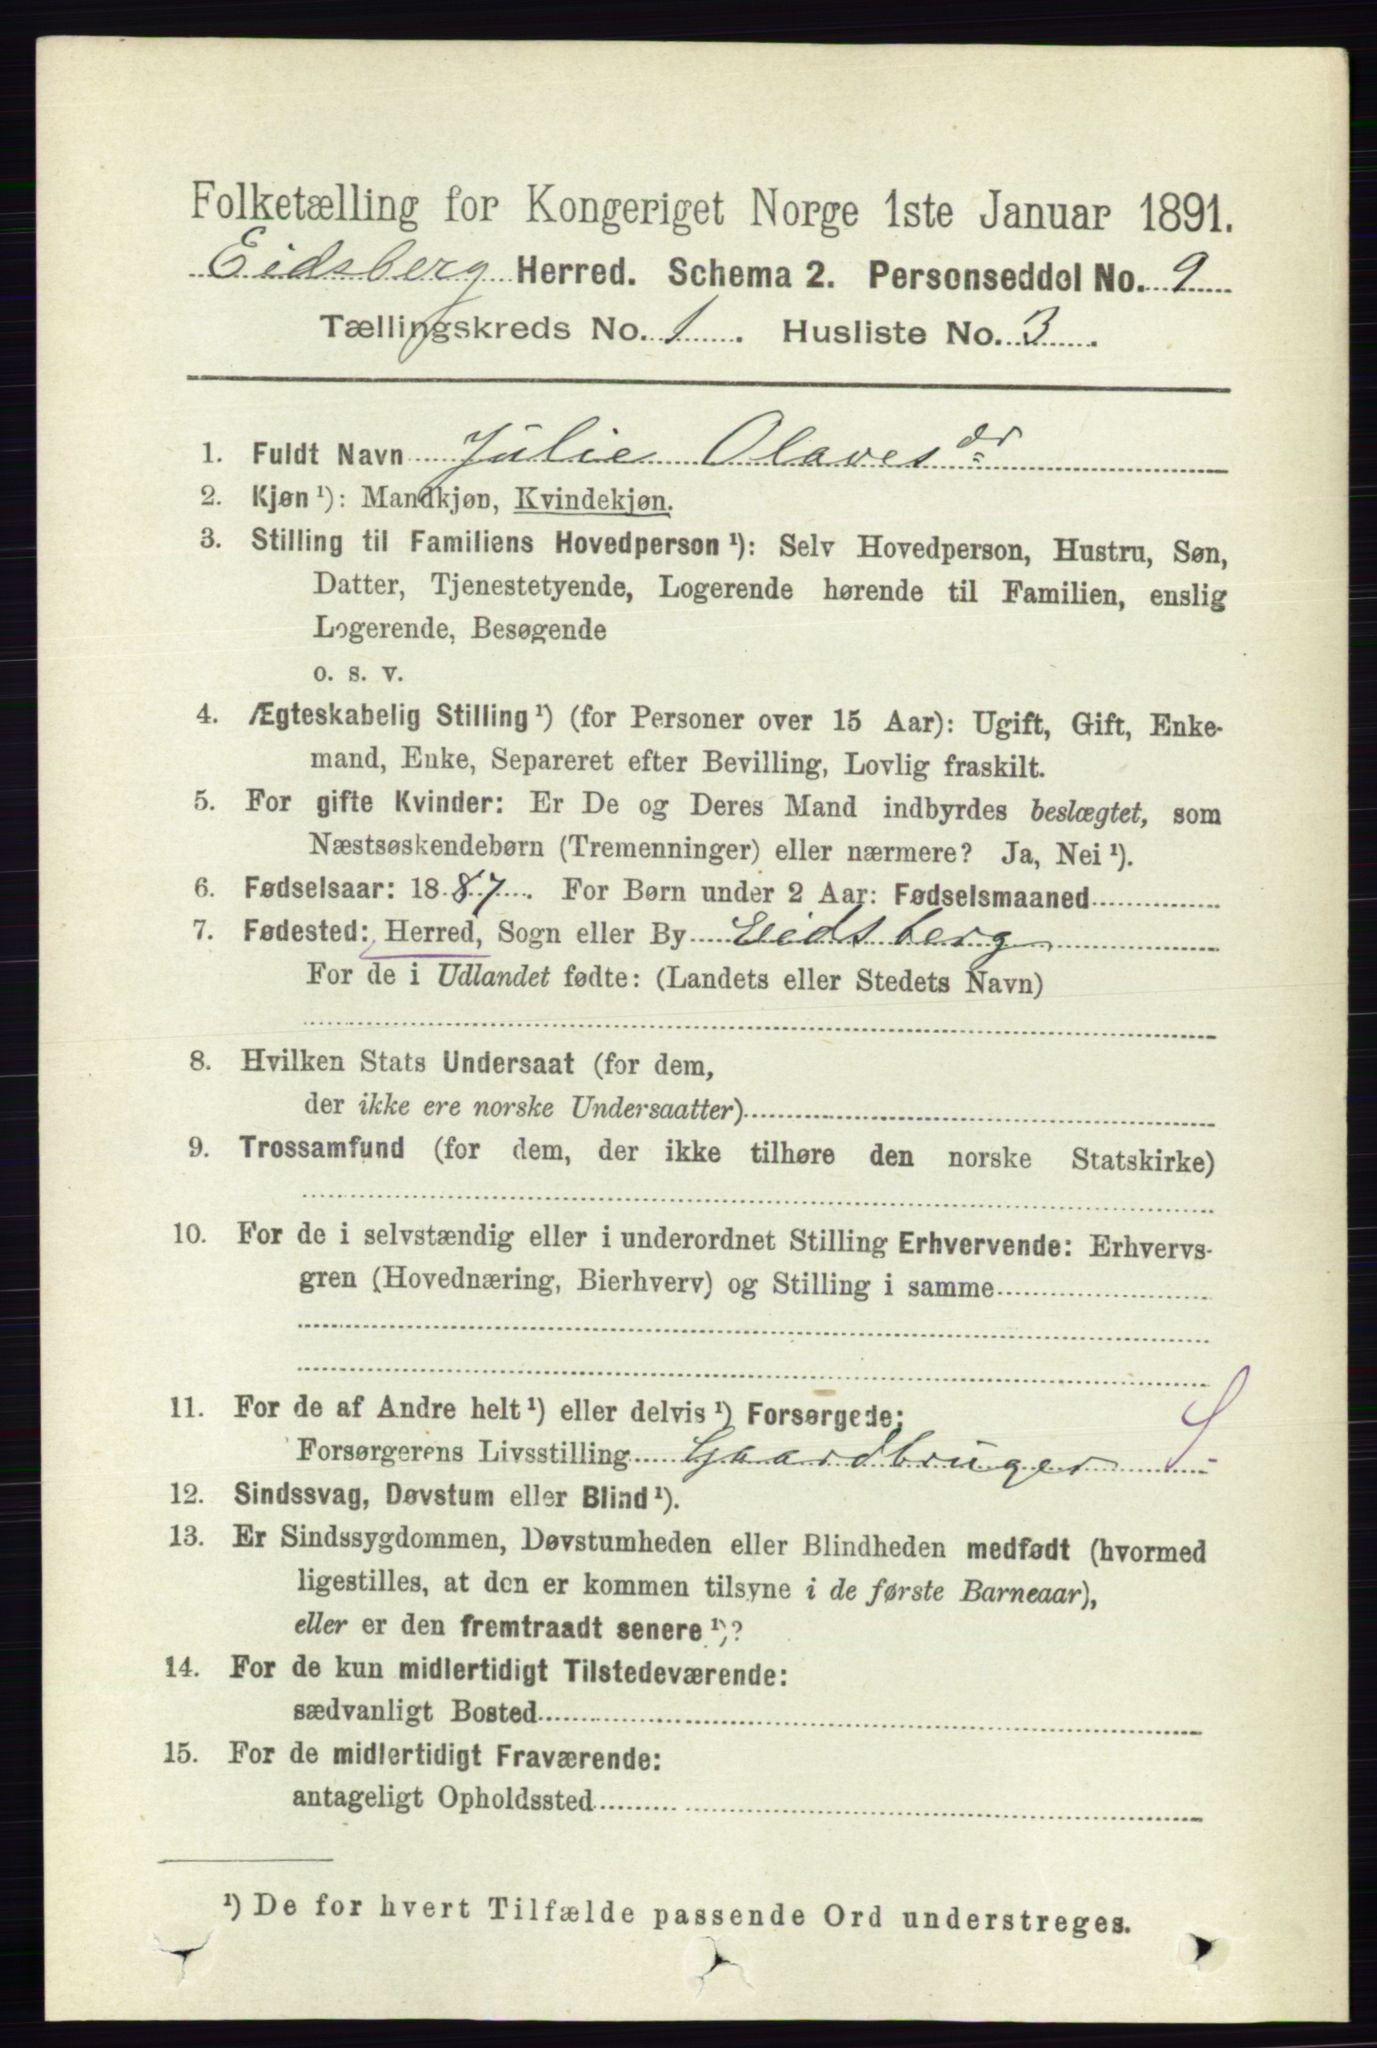 Folketælling for Kongeriget Norge 1ste Januar 1891.
Eidsberg Herred. Schema 2. Personseddel No. 9
Tællingskreds No. 1. Husliste No. 3.
1. Fuldt Navn Julie Olavesdr
2. Kjøn ¹): Mandkjøn, Kvindekjøn.
3. Stilling til Familiens Hovedperson ¹): Selv Hovedperson, Hustru, Søn,
Datter, Tjenestetyende, Logerende hørende til Familien, enslig
Logerende, Besøgende
o. s. v.
4. Ægteskabelig Stilling ¹) (for Personer over 15 Aar): Ugift, Gift, Enke-
mand, Enke, Separeret efter Bevilling, Lovlig fraskilt.
5. For gifte Kvinder: Er De og Deres Mand indbyrdes beslægtet, som
Næstsøskendebørn (Tremenninger) eller nærmere? Ja, Nei ¹).
6. Fødselsaar: 1887. For Børn under 2 Aar: Fødselsmaaned
7. Fødested: Herred, Sogn eller By Eidsberg
For de i Udlandet fødte: (Landets eller Stedets Navn)
8. Hvilken Stats Undersaat (for dem,
der ikke ere norske Undersaatter)
9. Trossamfund (for dem, der ikke tilhøre den norske Statskirke)
10. For de i selvstændig eller i underordnet Stilling Erhvervende: Erhvervs-
gren (Hovednæring, Bierhverv) og Stilling i samme
11. For de af Andre helt ¹) eller delvis ¹) Forsørgede:
Forsørgerens Livsstilling Gaardbruger
12. Sindssvag, Døvstum eller Blind ¹).
13. Er Sindssygdommen, Døvstumheden eller Blindheden medfødt (hvormed
ligestilles, at den er kommen tilsyne i de første Barneaar),
eller er den fremtraadt senere ¹)?
14. For de kun midlertidigt Tilstedeværende:
sædvanligt Bosted
15. For de midlertidigt Fraværende:
antageligt Opholdssted
¹) De for hvert Tilfælde passende Ord understreges.